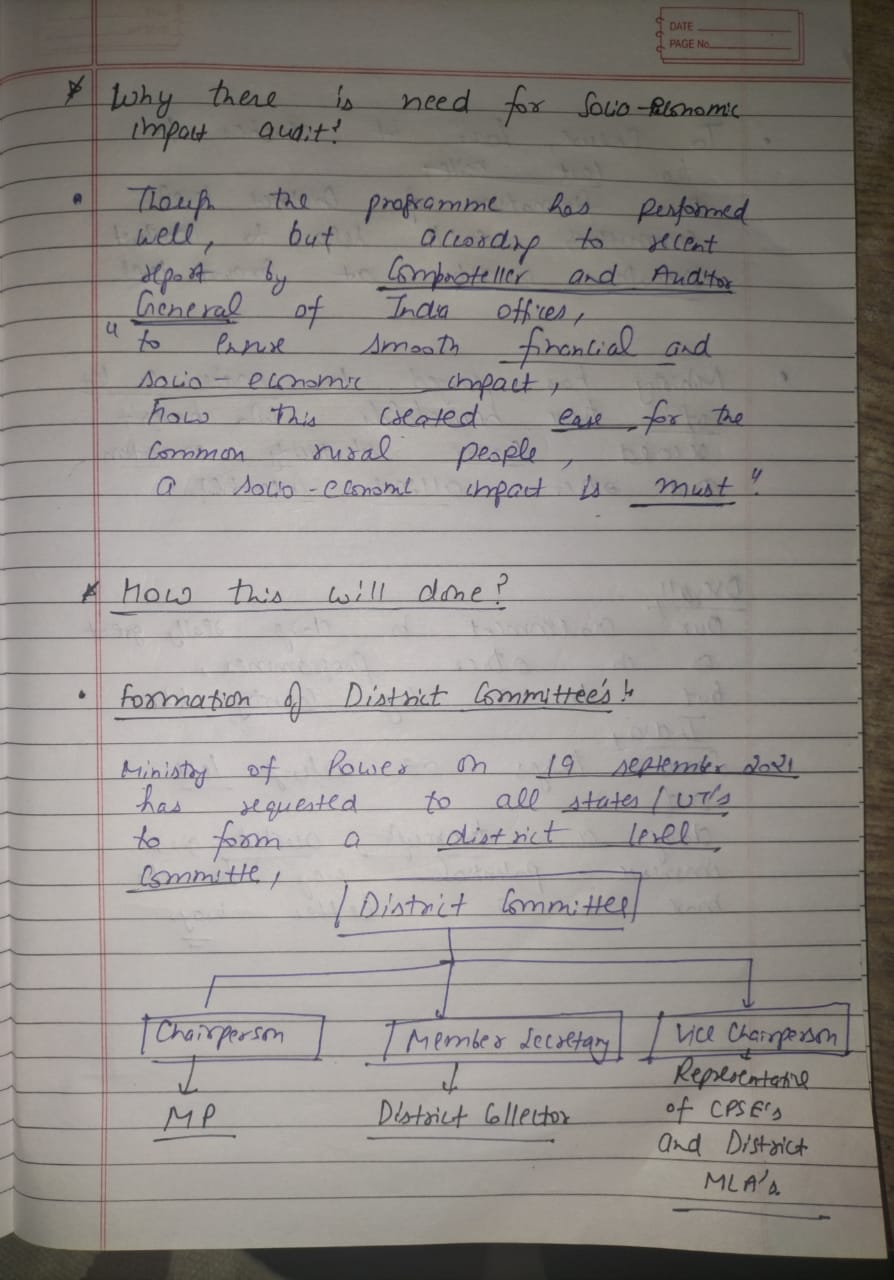 DATE
PAGE No.
* Why there is need for Socio-Economic
impact audit?
• Though the programme has performed
well, but according to recent
report by Comptroteller and Auditor
General of India offices,
" to ensure smooth financial and
socio-economic impact,
how this created ease for the
common rural people,
a socio-economic impact is must".
* How this will done?
• Formation of District Committee's :-
Ministry of Power on 19 september 2021
has requested to all states/UT's
to form a district level
committe,
District Committee
Chairperson
Member Secretary
Vice Chairperson
MP
District Collector
Representative
of CPSE's
and District
MLA's